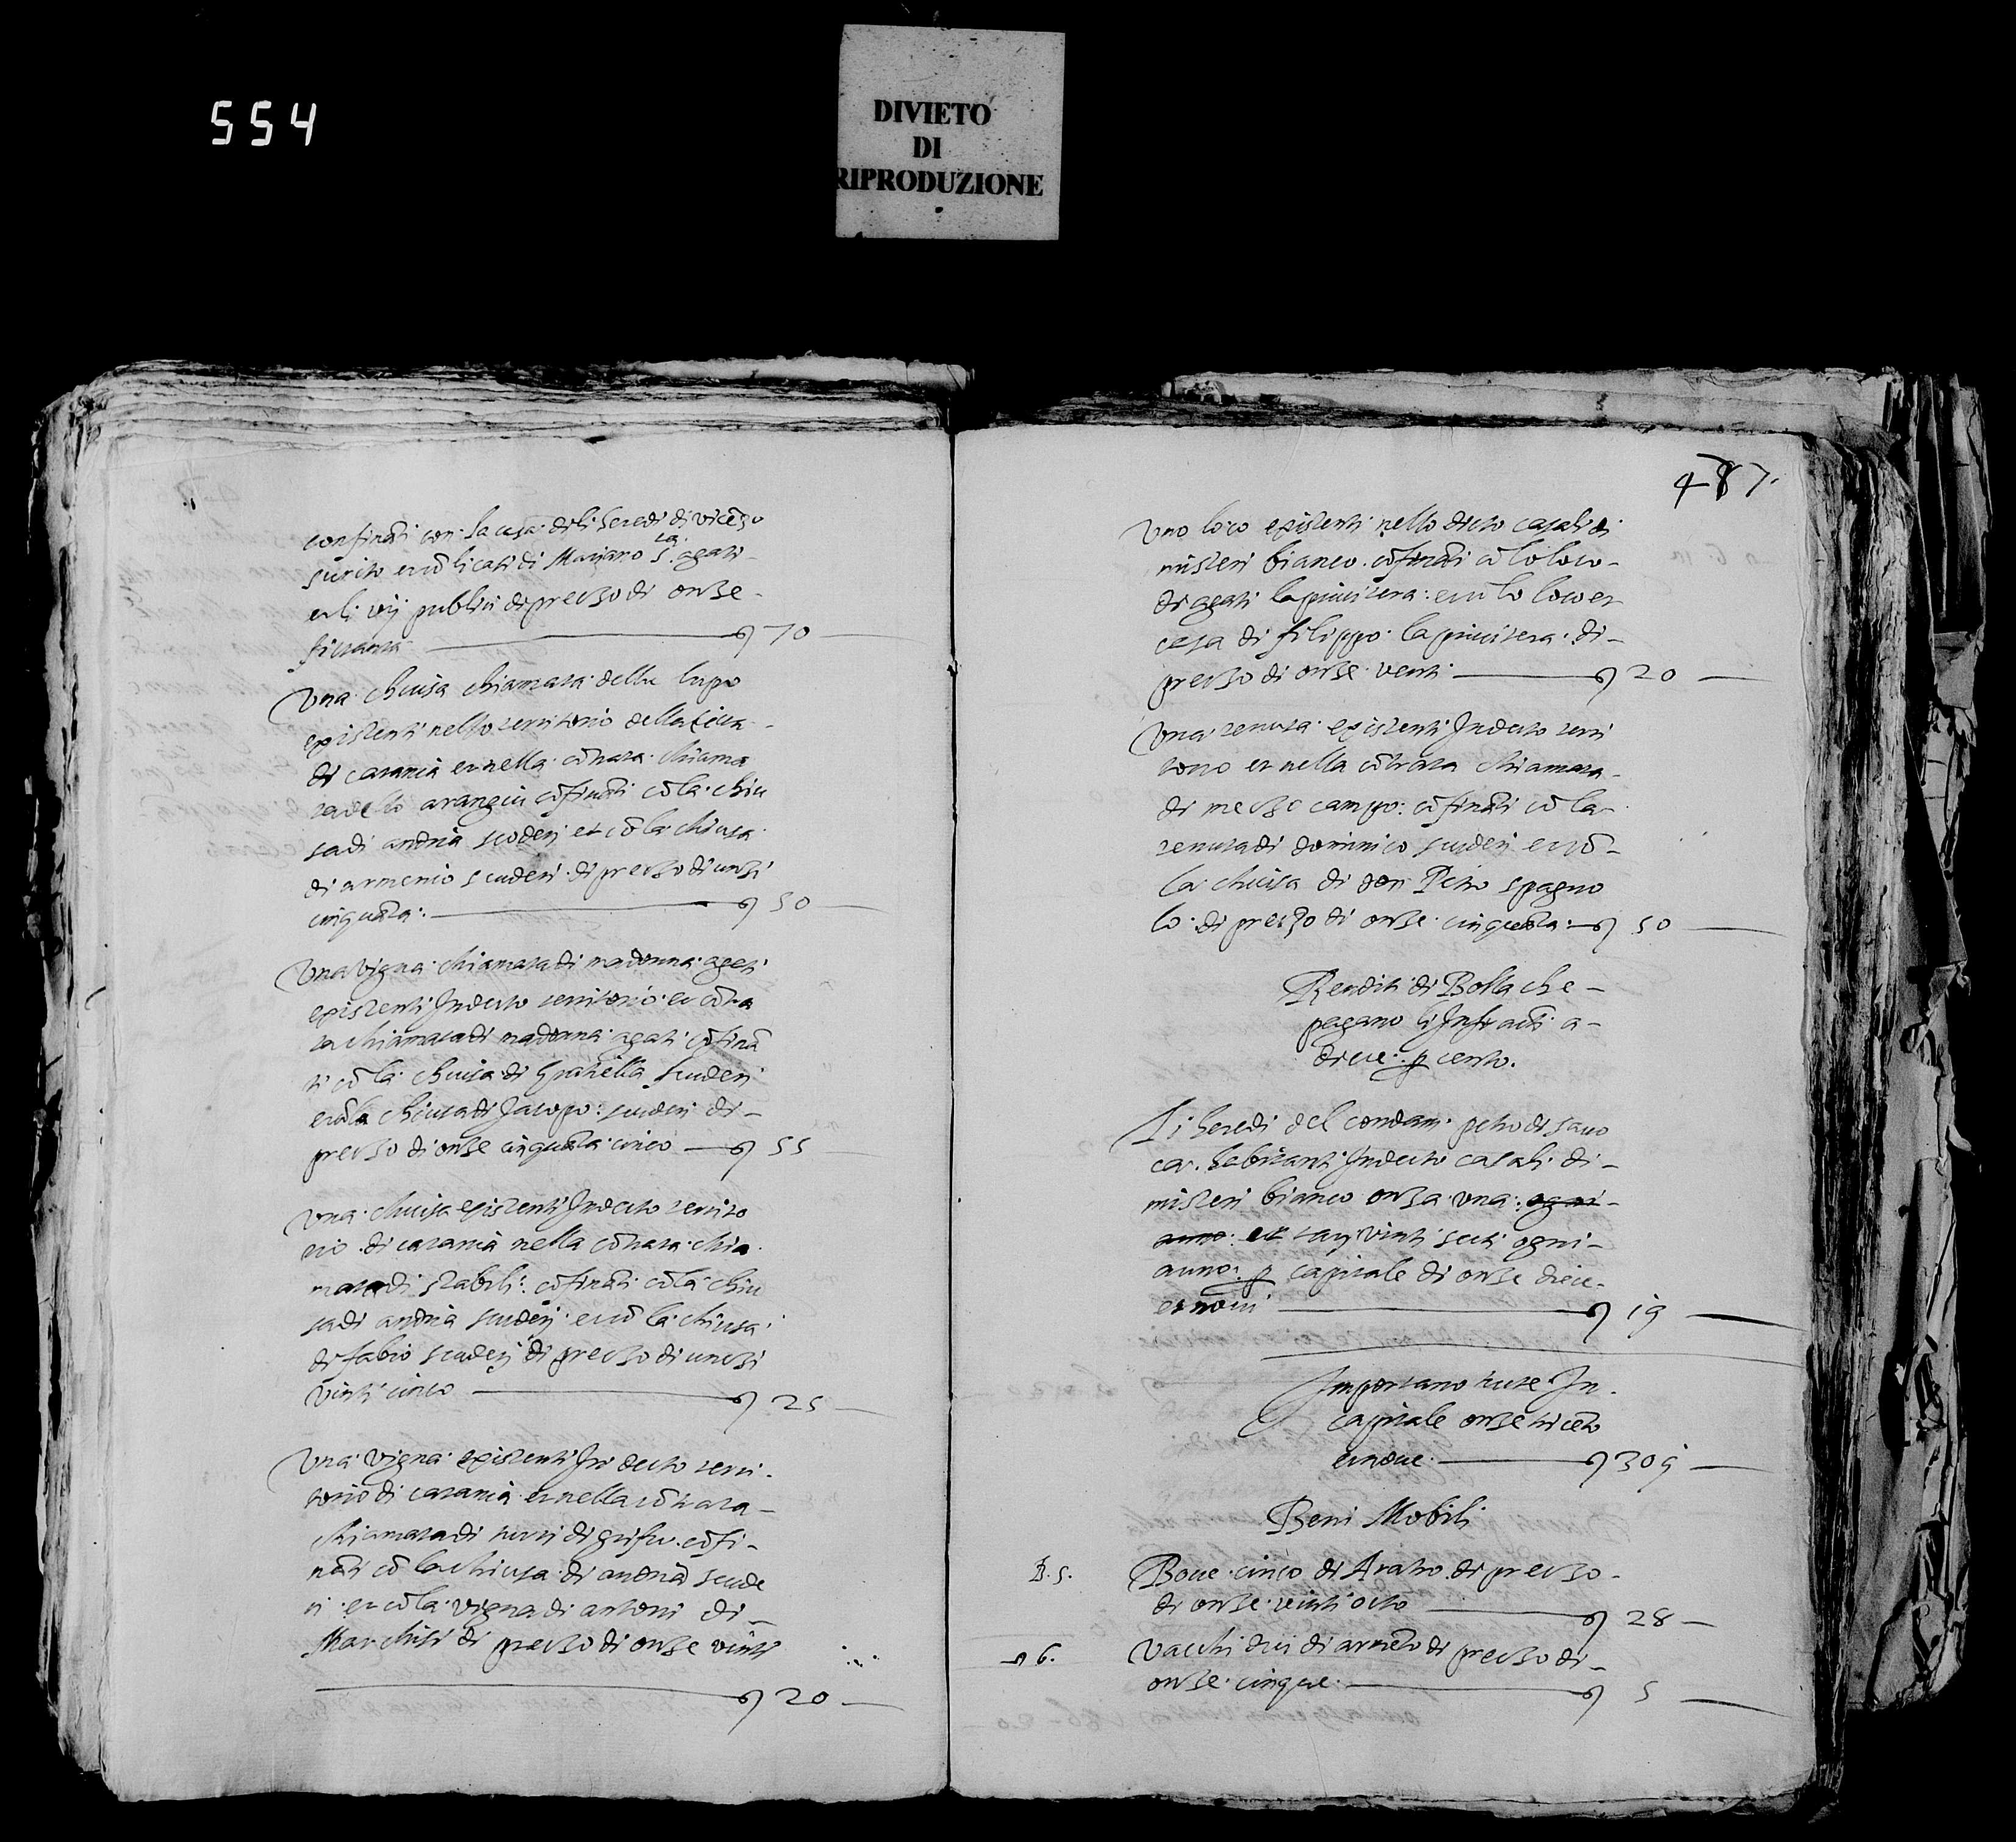 554
DIVIETO
DI
RIPRODUZIONE
confināti con la casa di li heredi di vicēzo
et li vij publici di prezzo di onze
70
Una chiusa chiamata dellu lupo
existenti nello territorio della
di catania et nella cōtrata chiama
ta dello arangiu cōfināti cō la chiu
sa di andria scoderj et cō la chiusa
di armenio scuderi di prezzo di unzi
cinquāta: 50
Una vigna chiamata di madonna agati
existenti In detto territorio et cōtra
ta chiamata di madonna agati cōfinā
ti cō la chiusa di scuderi
et cō la chiusa di Jacopo: scuderi di
prezzo di onze cinquāta cinco 55
Una chiusa existenti In detto territo
rio di catania nella cōtrata chia
mata di stabili: cōfināti cō la chiu
sa di andria scuderj et cō la chiusa
di fabio scuderj di prezzo di unczi
vinti cinco 25
Una vigna existenti In detto terri
torio di catania et nella cōtrata
chiamata di turri di grifu cōfi
nāti cō la chiusa di andria scude
ri et cō la vigna di antoni di
Marchisi di prezzo di onze vinti
20
487.
Uno loco existenti nello ditto casali di
misteri bianco cōfināti cō lo loco
di agati la et cō lo loco et
casa di filippo la di
prezzo di onze venti 20
Una tenuta existenti In detto terri
torio et nella cōtrata chiamata
di mezzo campo: cōfināti cō la
tenuta di dominico scuderj et cō
la chiusa di don Petro spagno
lo di prezzo di onze cinquāta: 50
Renditi di Bolla che
pagano li Infratti a
dieci p cento.
Li heredi del condam petro di savo
ca habitanti In detto casali di
misteri bianco onza una: ogni
anno: et tarj vinti setti ogni
anno: p capitale di onze dieci
et novi 19
Importano tutte In
capitale onze tricēto
et nove 309
Beni Mobili
B. 5. Bove cinco di Aratro di prezzo
di onze vinti otto 28
6. Vacchi dui di armēto di prezzo di
onze cinque 5